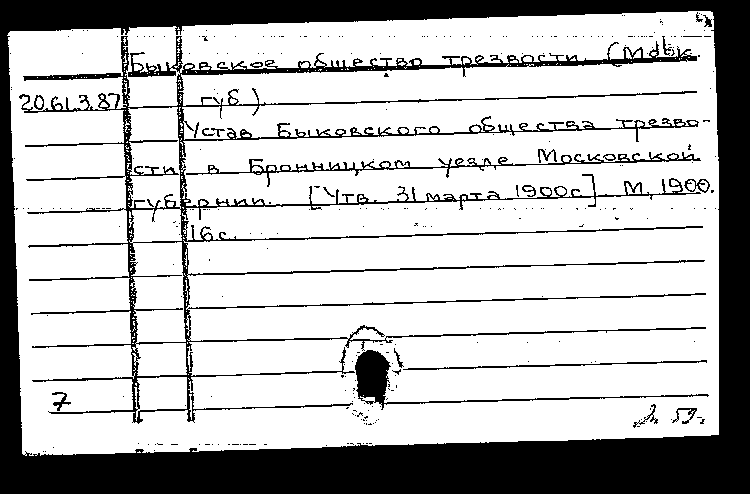 Быковское общество трезвости. (Моск.
20.61.3.87 губ.)
Устав Быковского общества трезво-
сти в Бронницком уезде Московской
губернии. [Утв. 31 марта 1900г]. М, 1900.
16 с.
7
59